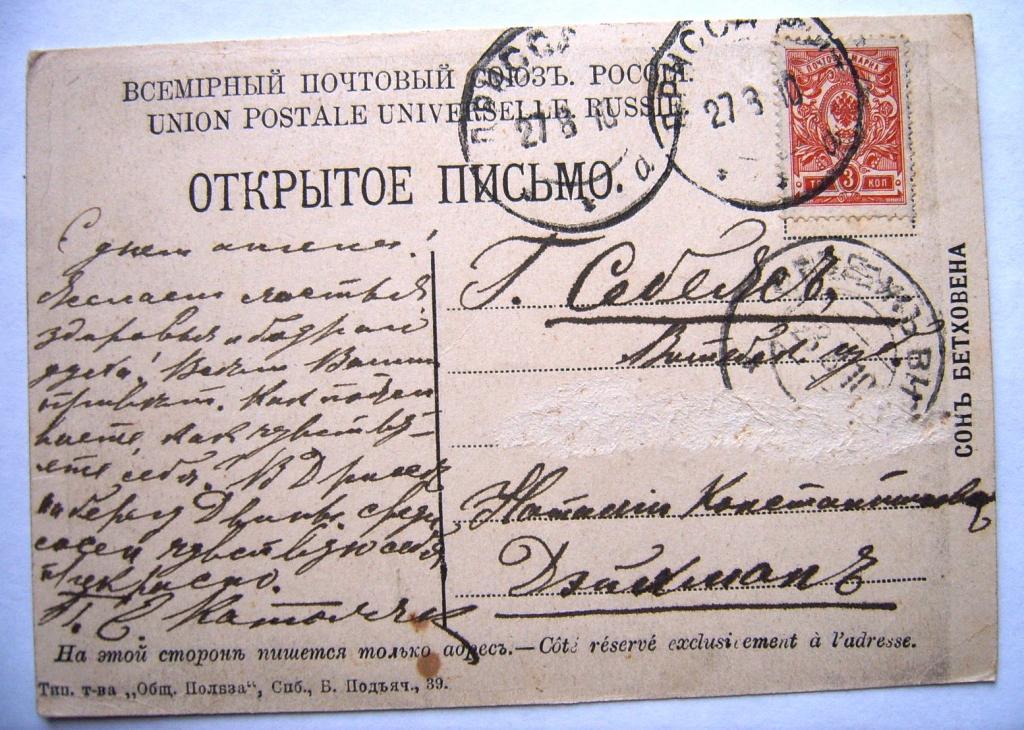 ВСЕМІРНЫЙ ПОЧТОВЫЙ СОЮЗЪ. РОССІЯ.
UNION POSTALE UNIVERSELLE. RUSSIE.
ОТКРЫТОЕ ПИСЬМО.
ДРИССА
27 8 10
а
ДРИССА
27 8 10
а
ПОЧТОВАЯ МАРКА
ТРИ 3 КОП
С днем ангела!
Желаем счастья
здоровья и бодраго
духа! Всем Вашим
привет. Как пожи
ваете, как чувству-
ете себя. В Дриссе
на берегу Двины среди
сосен чувствую себя
прекрасно.
Г. Себежъ,
Витебск губ.
Наталіи Константиновне
Дэйкманъ
СОНЪ БЕТХОВЕНА
На этой сторонѣ пишется только адресъ.—Côté réservé exclusivement à l'adresse.
Тип. т-ва „Общ. Польза“, Спб., Б. Подъяч., 39.